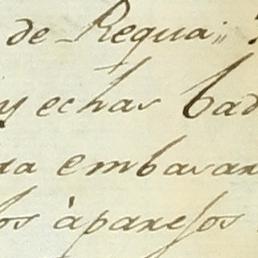 de Requa;
y echar bad
ra embarar
os àparejos